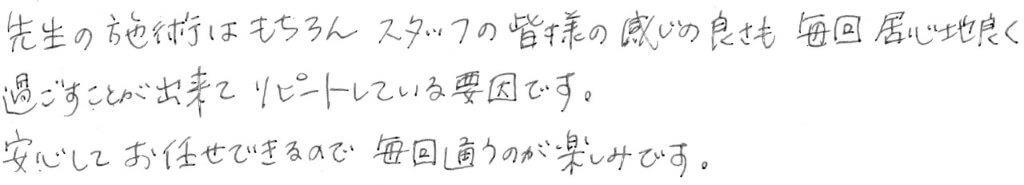 先生の施術はもちろん スタッフの皆様の感じの良さも 毎回 居心地良く
過ごすことが出来て リピートしている要因です。
安心して お任せできるので 毎回通うのが楽しみです。